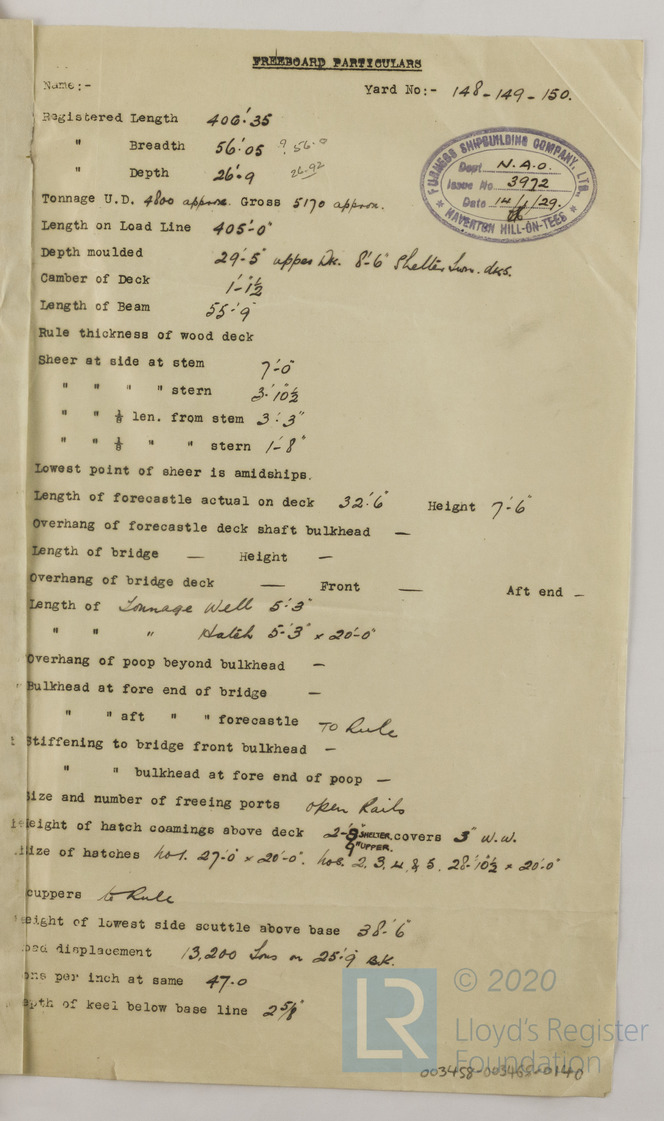 FREEBOARD PARTICULARS
Name:-
Yard No:- 148-149-150.
Registered Length 406'.35
" Breadth 56'.05 ? 56.0
" Depth 26'.9 26.92
FURNESS SHIPBUILDING COMPANY, LTD.
Dept N.A.O.
Issue No 3972
Date 14/1/29.
HAVERTON HILL-ON-TEES
Tonnage U.D. 4800 approx. Gross 5170 approx.
Length on Load Line 405'-0"
Depth moulded 29'-5" upper Dk. 8'-6" Shelter dks.
Camber of Deck 1'-1½"
Length of Beam 55'-9"
Rule thickness of wood deck
Sheer at side at stem 7'-0"
" " " " stern 3'-10½"
" " ⅛ len. from stem 3'-3"
" " ⅛ " " stern 1'-8"
Lowest point of sheer is amidships.
Length of forecastle actual on deck 32'-6" Height 7'-6"
Overhang of forecastle deck shaft bulkhead —
Length of bridge — Height —
Overhang of bridge deck — Front — Aft end -
Length of Tonnage Well 5'-3"
" " " Hatch 5'-3" x 20'-0"
Overhang of poop beyond bulkhead —
Bulkhead at fore end of bridge —
" " aft " " forecastle To Rule
Stiffening to bridge front bulkhead —
" " bulkhead at fore end of poop —
Size and number of freeing ports open Rails
Height of hatch coamings above deck 2'- SHELTER. covers 3" W.W.
9" UPPER.
Size of hatches No 1. 27'-0" x 20'-0". Nos. 2, 3, 4, & 5. 28'-10½" x 20'-0"
cuppers to Rule
eight of lowest side scuttle above base 38'-6"
displacement 13,200 Tons on 25'-9" BK.
ons per inch at same 47.0
pth of keel below base line 2⅝"
LR
© 2020
Lloyd's Register
Foundation
003458-003468-0140